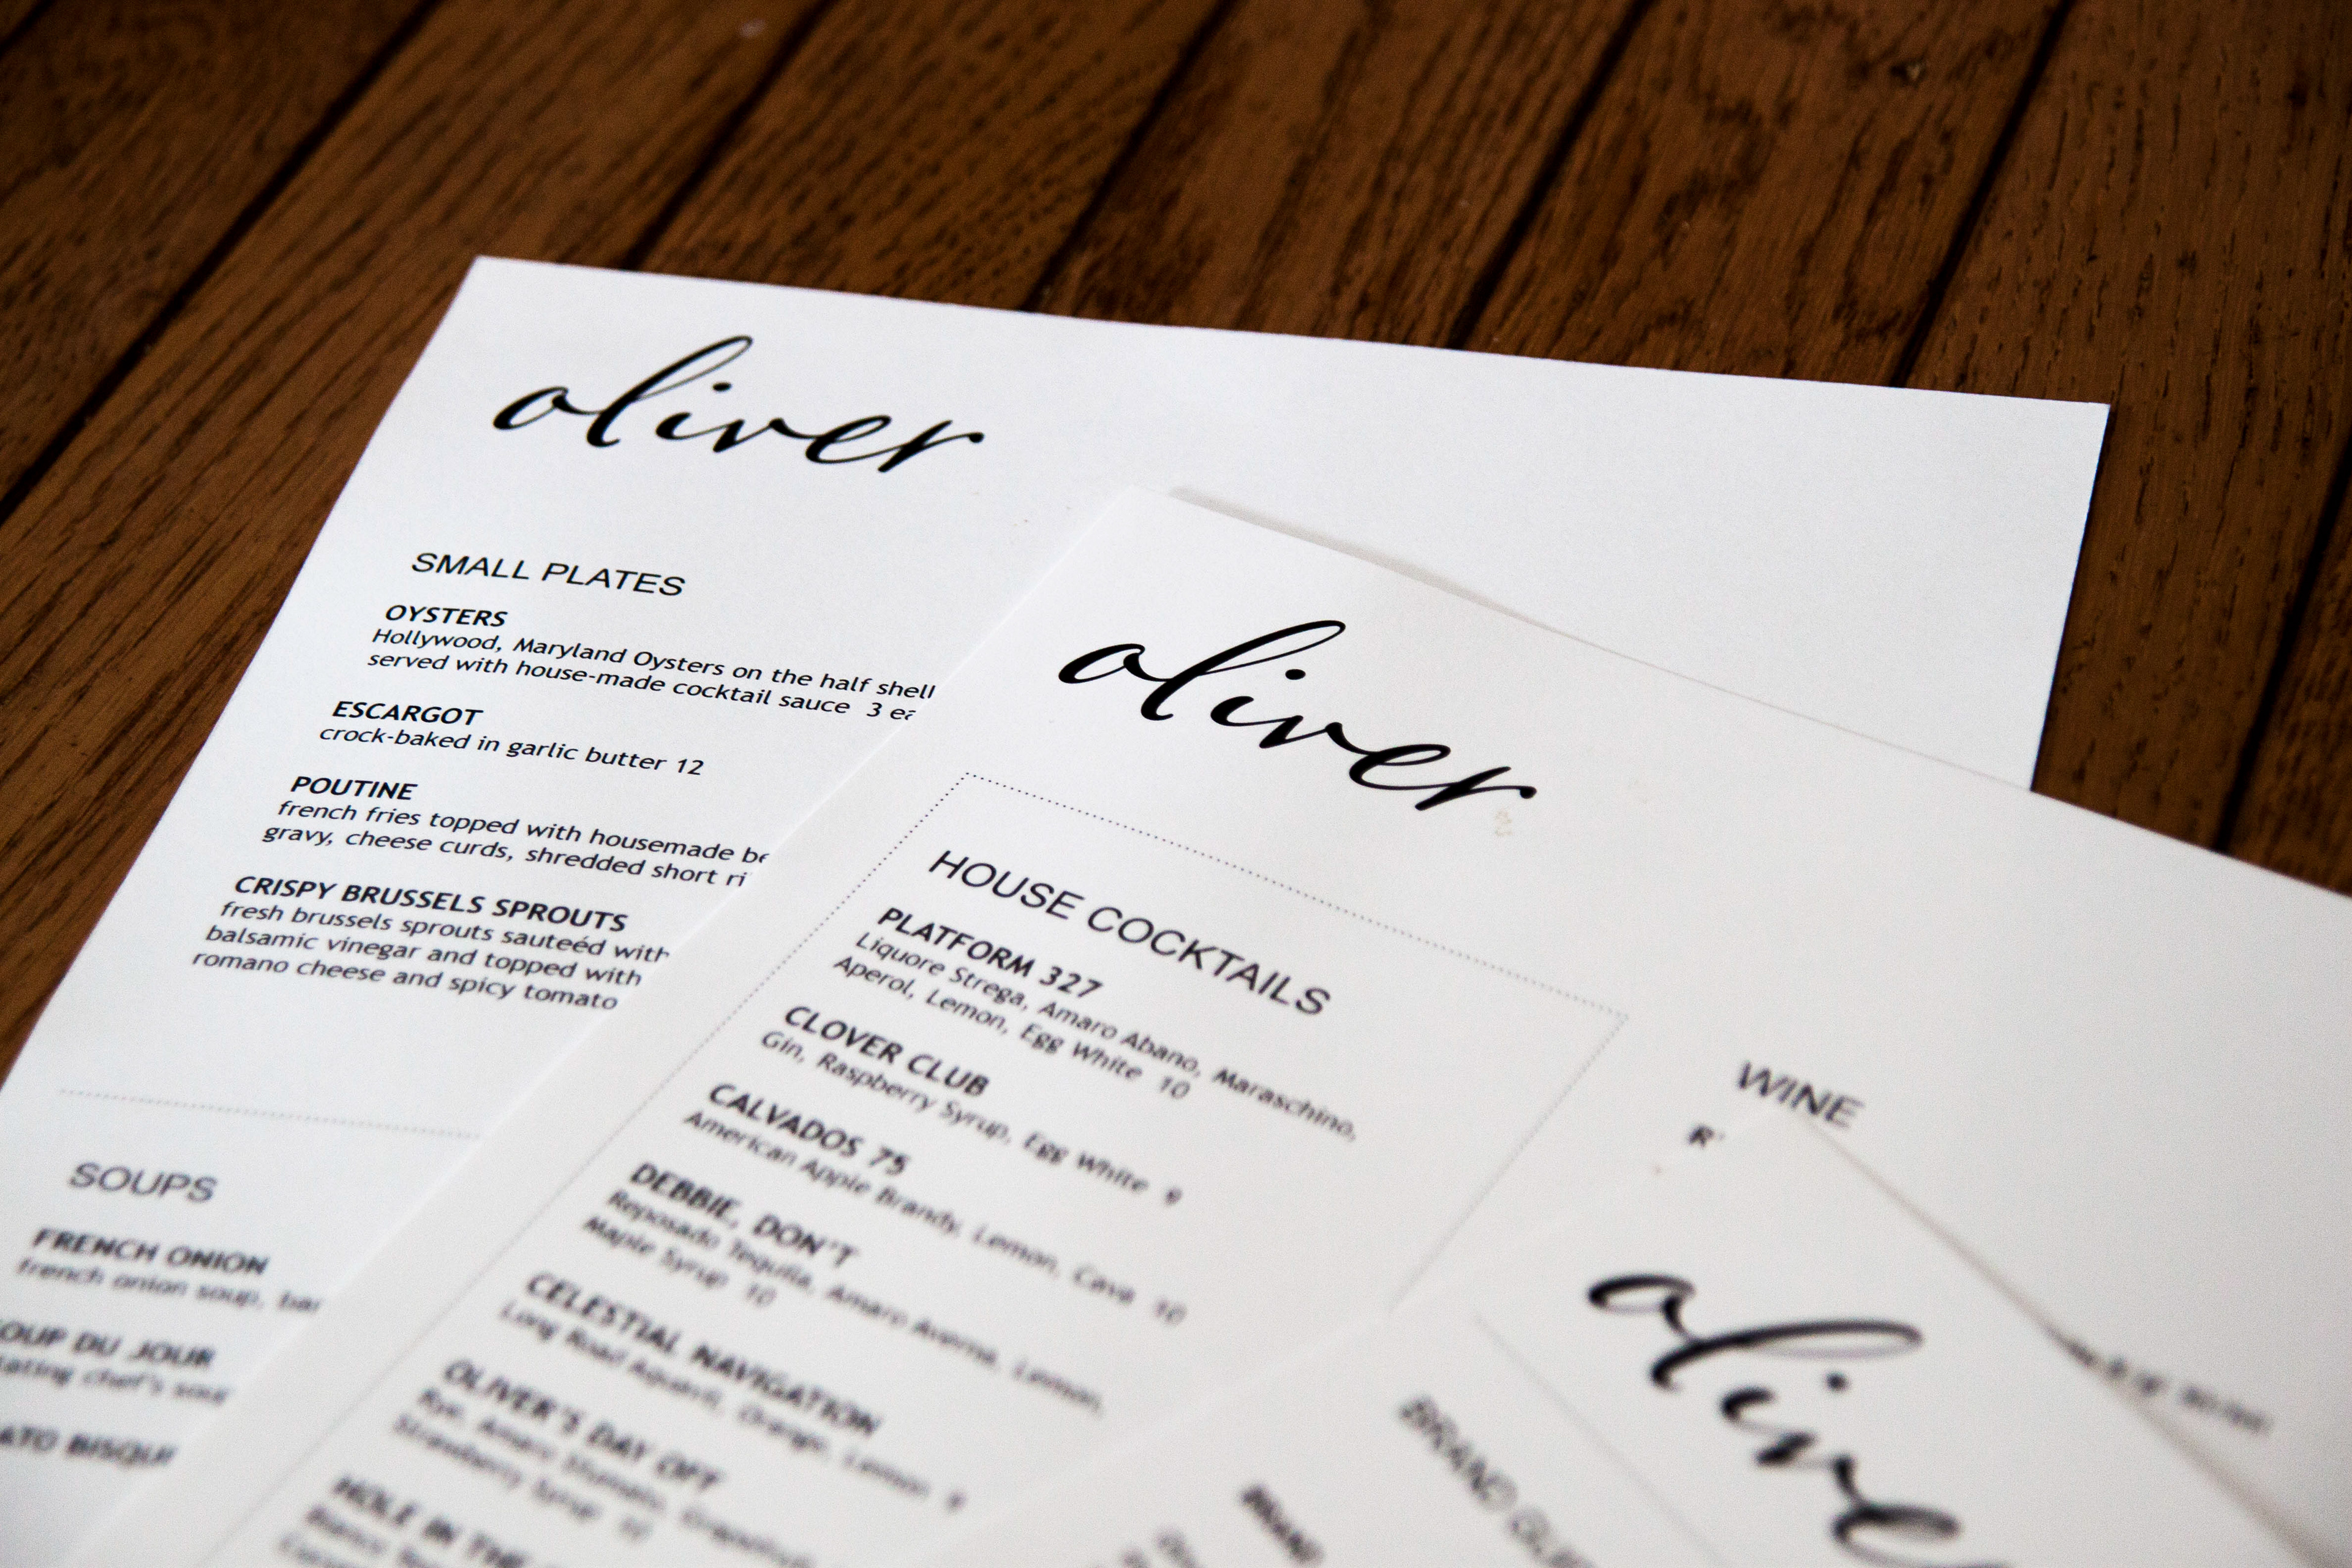 oliver
SMALL PLATES
OYSTERS
Hollywood, Maryland Oysters on the half shell
served with house-made cocktail sauce 3 ea
ESCARGOT
crock-baked in garlic butter 12
POUTINE
french fries topped with housemade
gravy, cheese curds, shredded short
CRISPY BRUSSELS SPROUTS
fresh brussels sprouts sauteéd with
balsamic vinegar and topped with
romano cheese and spicy tomato
SOUPS
FRENCH ONION
french onion soup,
OUP DU JOUR
chef's
ATO BISQU
oliver
HOUSE COCKTAILS
PLATFORM 327
Liquore Strega, Amaro Abano, Maraschino,
Aperol, Lemon, Egg White 10
CLOVER CLUB
Gin, Raspberry Syrup, Egg White 9
CALVADOS 75
American Apple Brandy, Lemon, Cava 10
DEBBIE, DON'T
Reposado Tequila, Amaro Averna, Lemon,
Maple Syrup 10
CELESTIAL NAVIGATION
Long Road Aquavit, Orange, Lemon 9
OLIVER'S DAY OFF
Rye, Amaro
Strawberry Syrup
HOLE IN THE
WINE
R
olive
BRAND
BRAND